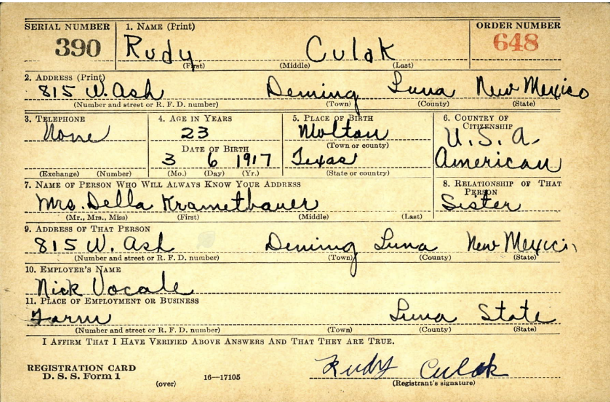 SERIAL NUMBER 1. NAME (Print) ORDER NUMBER
390 Rudy Culak 648
(First) (Middle) (Last)
2. ADDRESS (Print)
815 W. Ash Deming Luna New Mexico
(Number and street or R. F. D. number) (Town) (County) (State)
3. TELEPHONE 4. AGE IN YEARS 5. PLACE OF BIRTH 6. COUNTRY OF CITIZENSHIP
None 23 Molton U.S.A.
DATE OF BIRTH (Town or county)
3 6 1917 Texas American
(Exchange) (Number) (Mo.) (Day) (Yr.) (State or country)
7. NAME OF PERSON WHO WILL ALWAYS KNOW YOUR ADDRESS 8. RELATIONSHIP OF THAT PERSON
Mrs. Della Krametbauer Sister
(Mr., Mrs., Miss) (First) (Middle) (Last)
9. ADDRESS OF THAT PERSON
815 W. Ash Deming Luna New Mexico
(Number and street or R. F. D. number) (Town) (County) (State)
10. EMPLOYER'S NAME
Nick Vocale
11. PLACE OF EMPLOYMENT OR BUSINESS
Farm Luna State
(Number and street or R. F. D. number) (Town) (County) (State)
I AFFIRM THAT I HAVE VERIFIED ABOVE ANSWERS AND THAT THEY ARE TRUE.
REGISTRATION CARD Rudy Culak
D. S. S. Form 1 (over) 16—17105 (Registrant's signature)